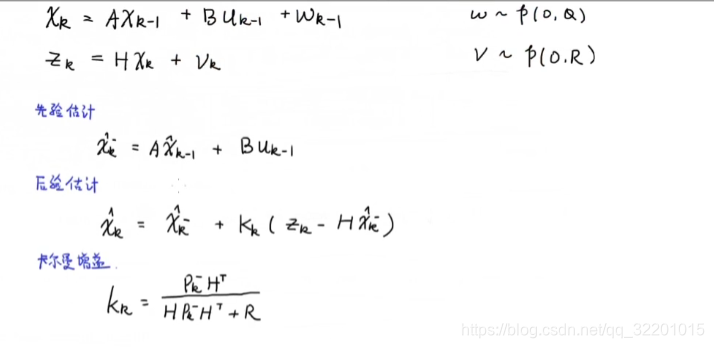 xₖ = Axₖ₋₁ + Buₖ₋₁ + wₖ₋₁    w ~ p(0,Q)
zₖ = Hxₖ + vₖ    v ~ p(0.R)
先验估计
x̂ₖ⁻ = Ax̂ₖ₋₁ + Buₖ₋₁
后验估计
x̂ₖ = x̂ₖ⁻ + Kₖ ( zₖ - Hx̂ₖ⁻ )
卡尔曼增益
Kₖ = Pₖ⁻Hᵀ / HPₖ⁻Hᵀ + R
https://blog.csdn.net/qq_32201015